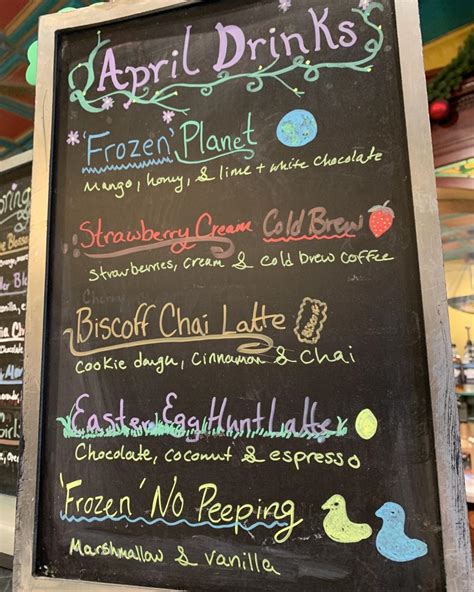 April Drinks
'Frozen' Planet
Mango, honey, & lime + white chocolate
Strawberry Cream Cold Brew
Strawberries, cream & cold brew coffee
Biscoff Chai Latte
Biscoff
cookie dough, cinnamon & chai
Easter Egg Hunt Latte
Chocolate, coconut & espresso
'Frozen' No Peeping
Marshmallow & vanilla